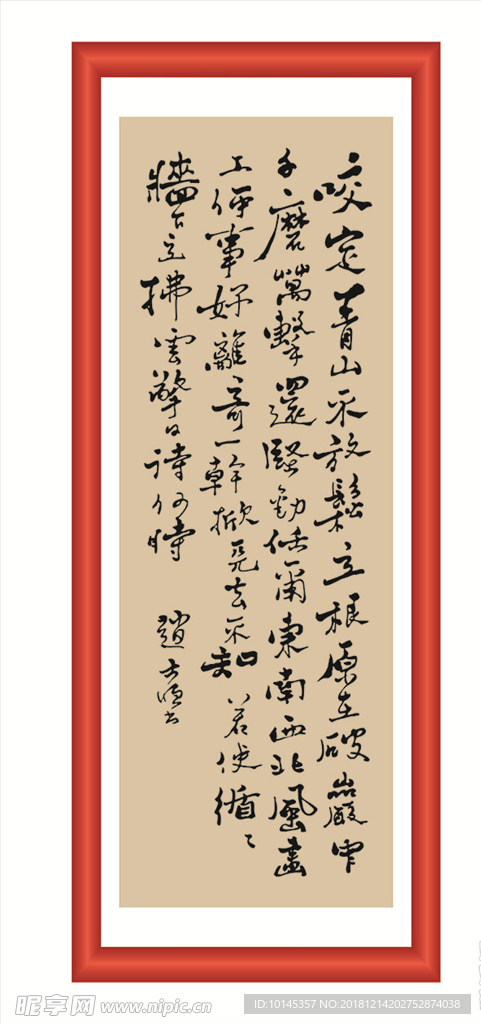 咬定青山不放鬆立根原在破巖中
千磨萬擊還堅勁任爾東南西北風畫
工何事好離奇一幹掀天去不知若使循々
牆下立拂雲擎日待何時 趙
昵享网 www.nipic.cn
ID:10145357 NO:20181214202752874038